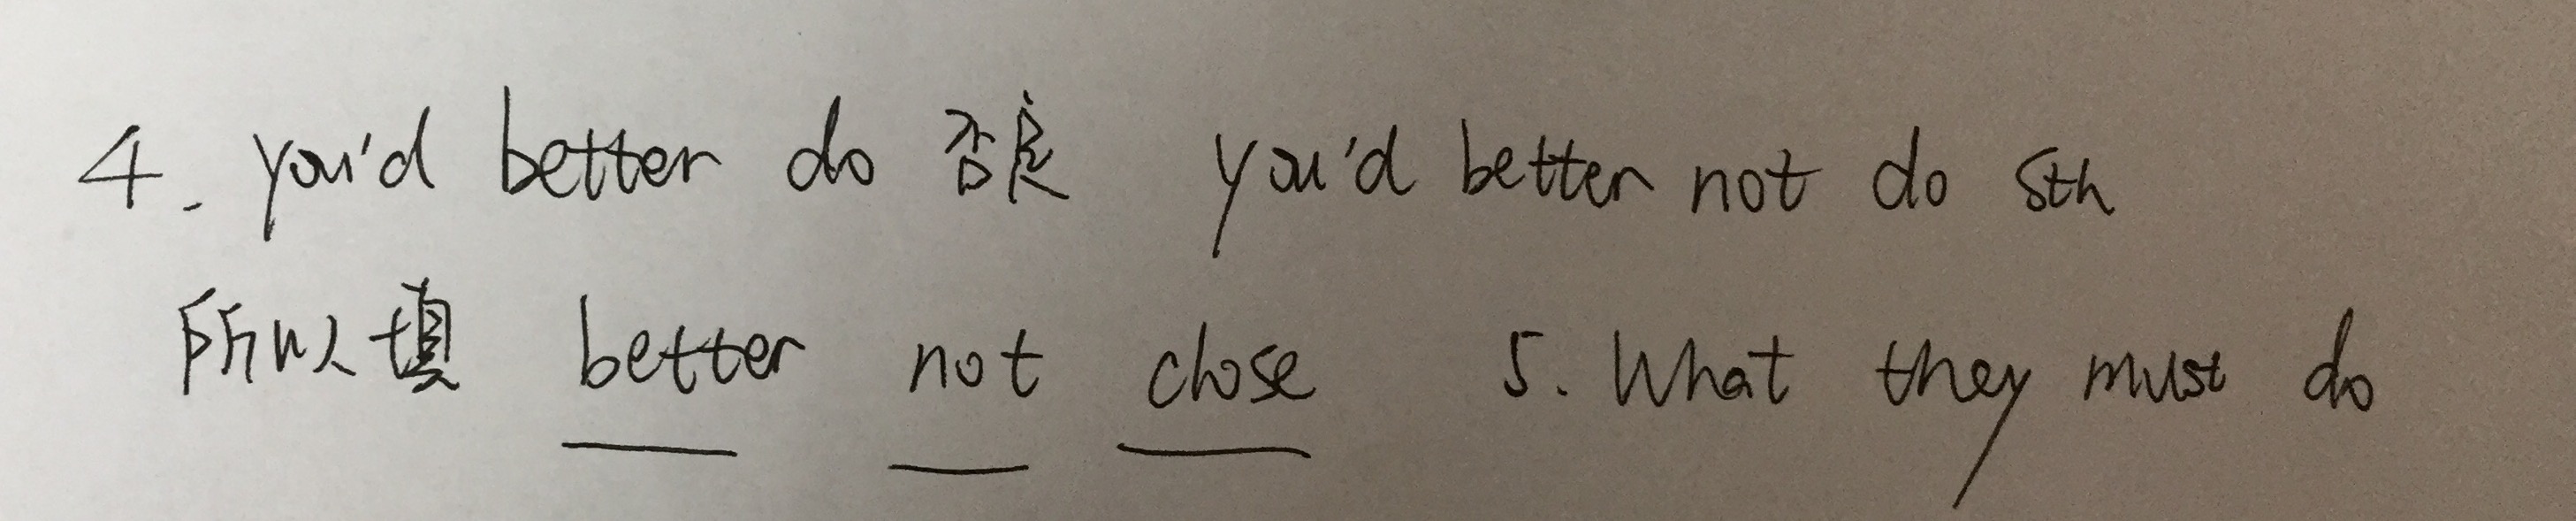 4. you'd better do 否定 you'd better not do sth
所以填 better not close 5. What they must do